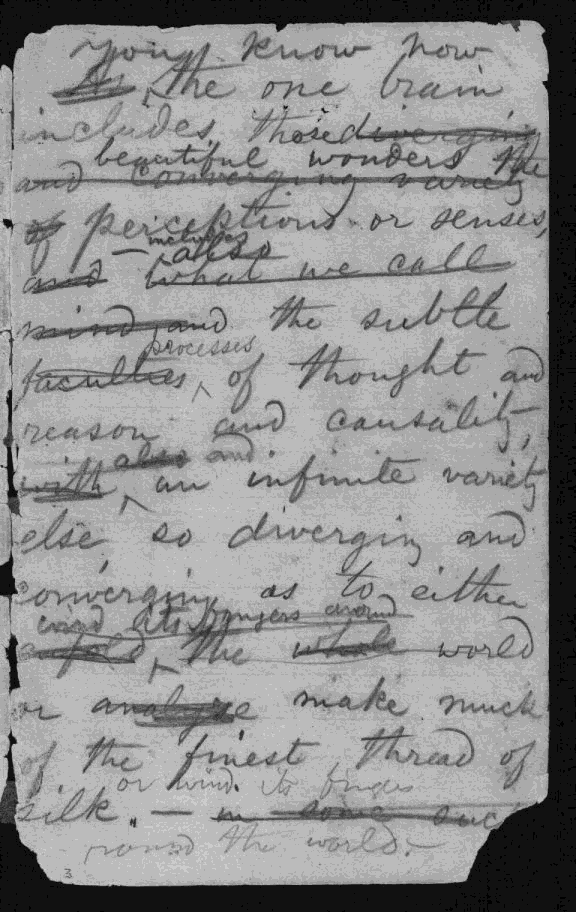 you know how
As, the one brain
includes, those diverging
beautiful wonders the
and converging variety
of perceptions or senses,
— includes also
and what we call
mind and the subtle
processes
faculties, of thought and
reason and causality,
also and
with an infinite variety
else, so diverging and
converging as to either
wind its fingers around
enfold, the whole world
or analyze make much
of the finest thread of
or wind its finger
silk. — in some such
round the world. —
3